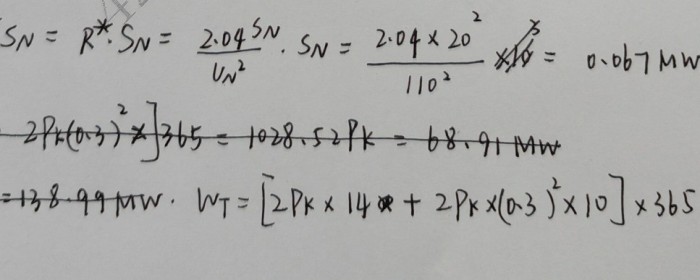 SN = R*·SN = 2.04 SN / UN² · SN = 2.04 × 20² / 110² = 0.067 MW
2PK(0.3)² × ] 365 = 1028.52 PK = 68.91 MW
= 138.99 MW. WT = [2PK × 14 + 2PK × (0.3)² × 10] × 365